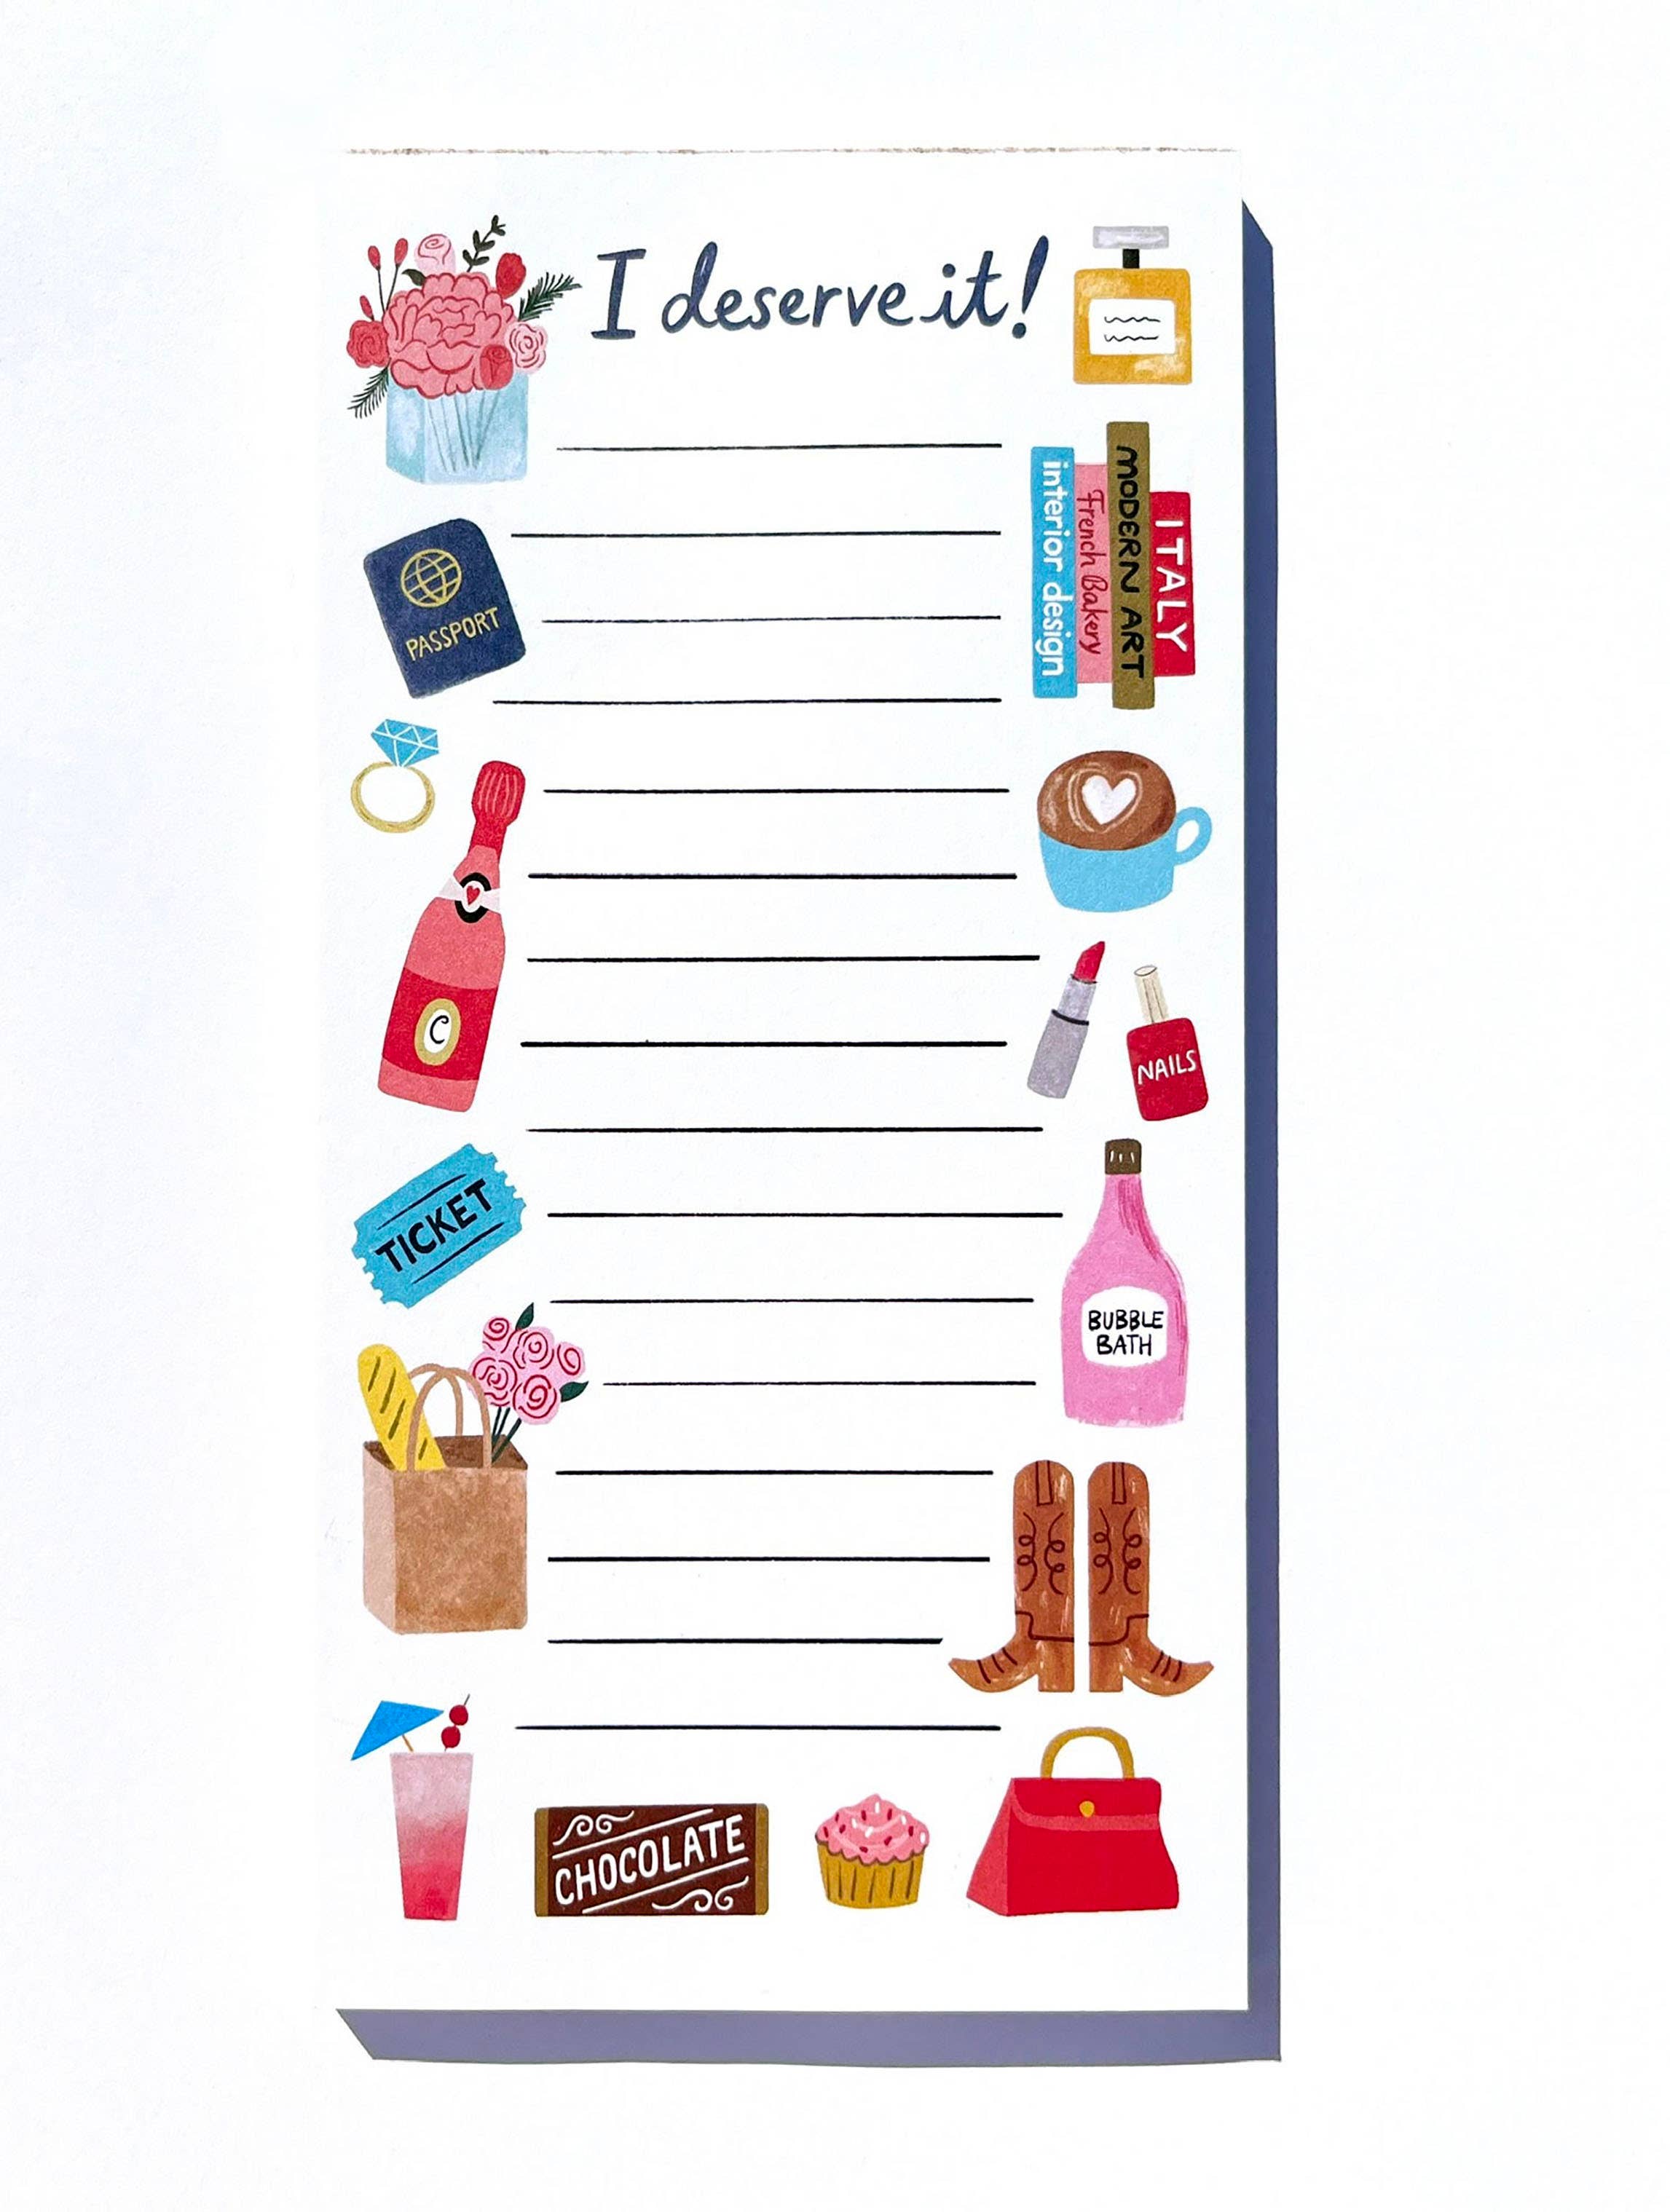 I deserve it!
interior design
French Bakery
MODERN ART
ITALY
PASSPORT
C
NAILS
TICKET
BUBBLE
BATH
CHOCOLATE